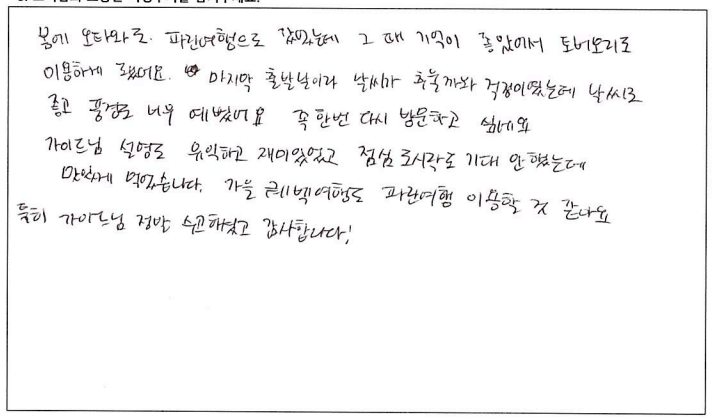 봄에 오타와로 파란여행으로 갔었는데 그 때 기억이 좋았어서 토버모리로
이용하게 됐어요. 마지막 출발날이라 날씨가 추울까봐 걱정이었는데 날씨도
좋고 풍경도 너무 예뻤어요 꼭 한번 다시 방문하고 싶네요
가이드님 설명도 유익하고 재미있었고 점심 도시락도 기대 안했는데
맛있게 먹었습니다. 가을 퀘벡여행도 파란여행 이용할 것 같아요
특히 가이드님 정말 수고하셨고 감사합니다!